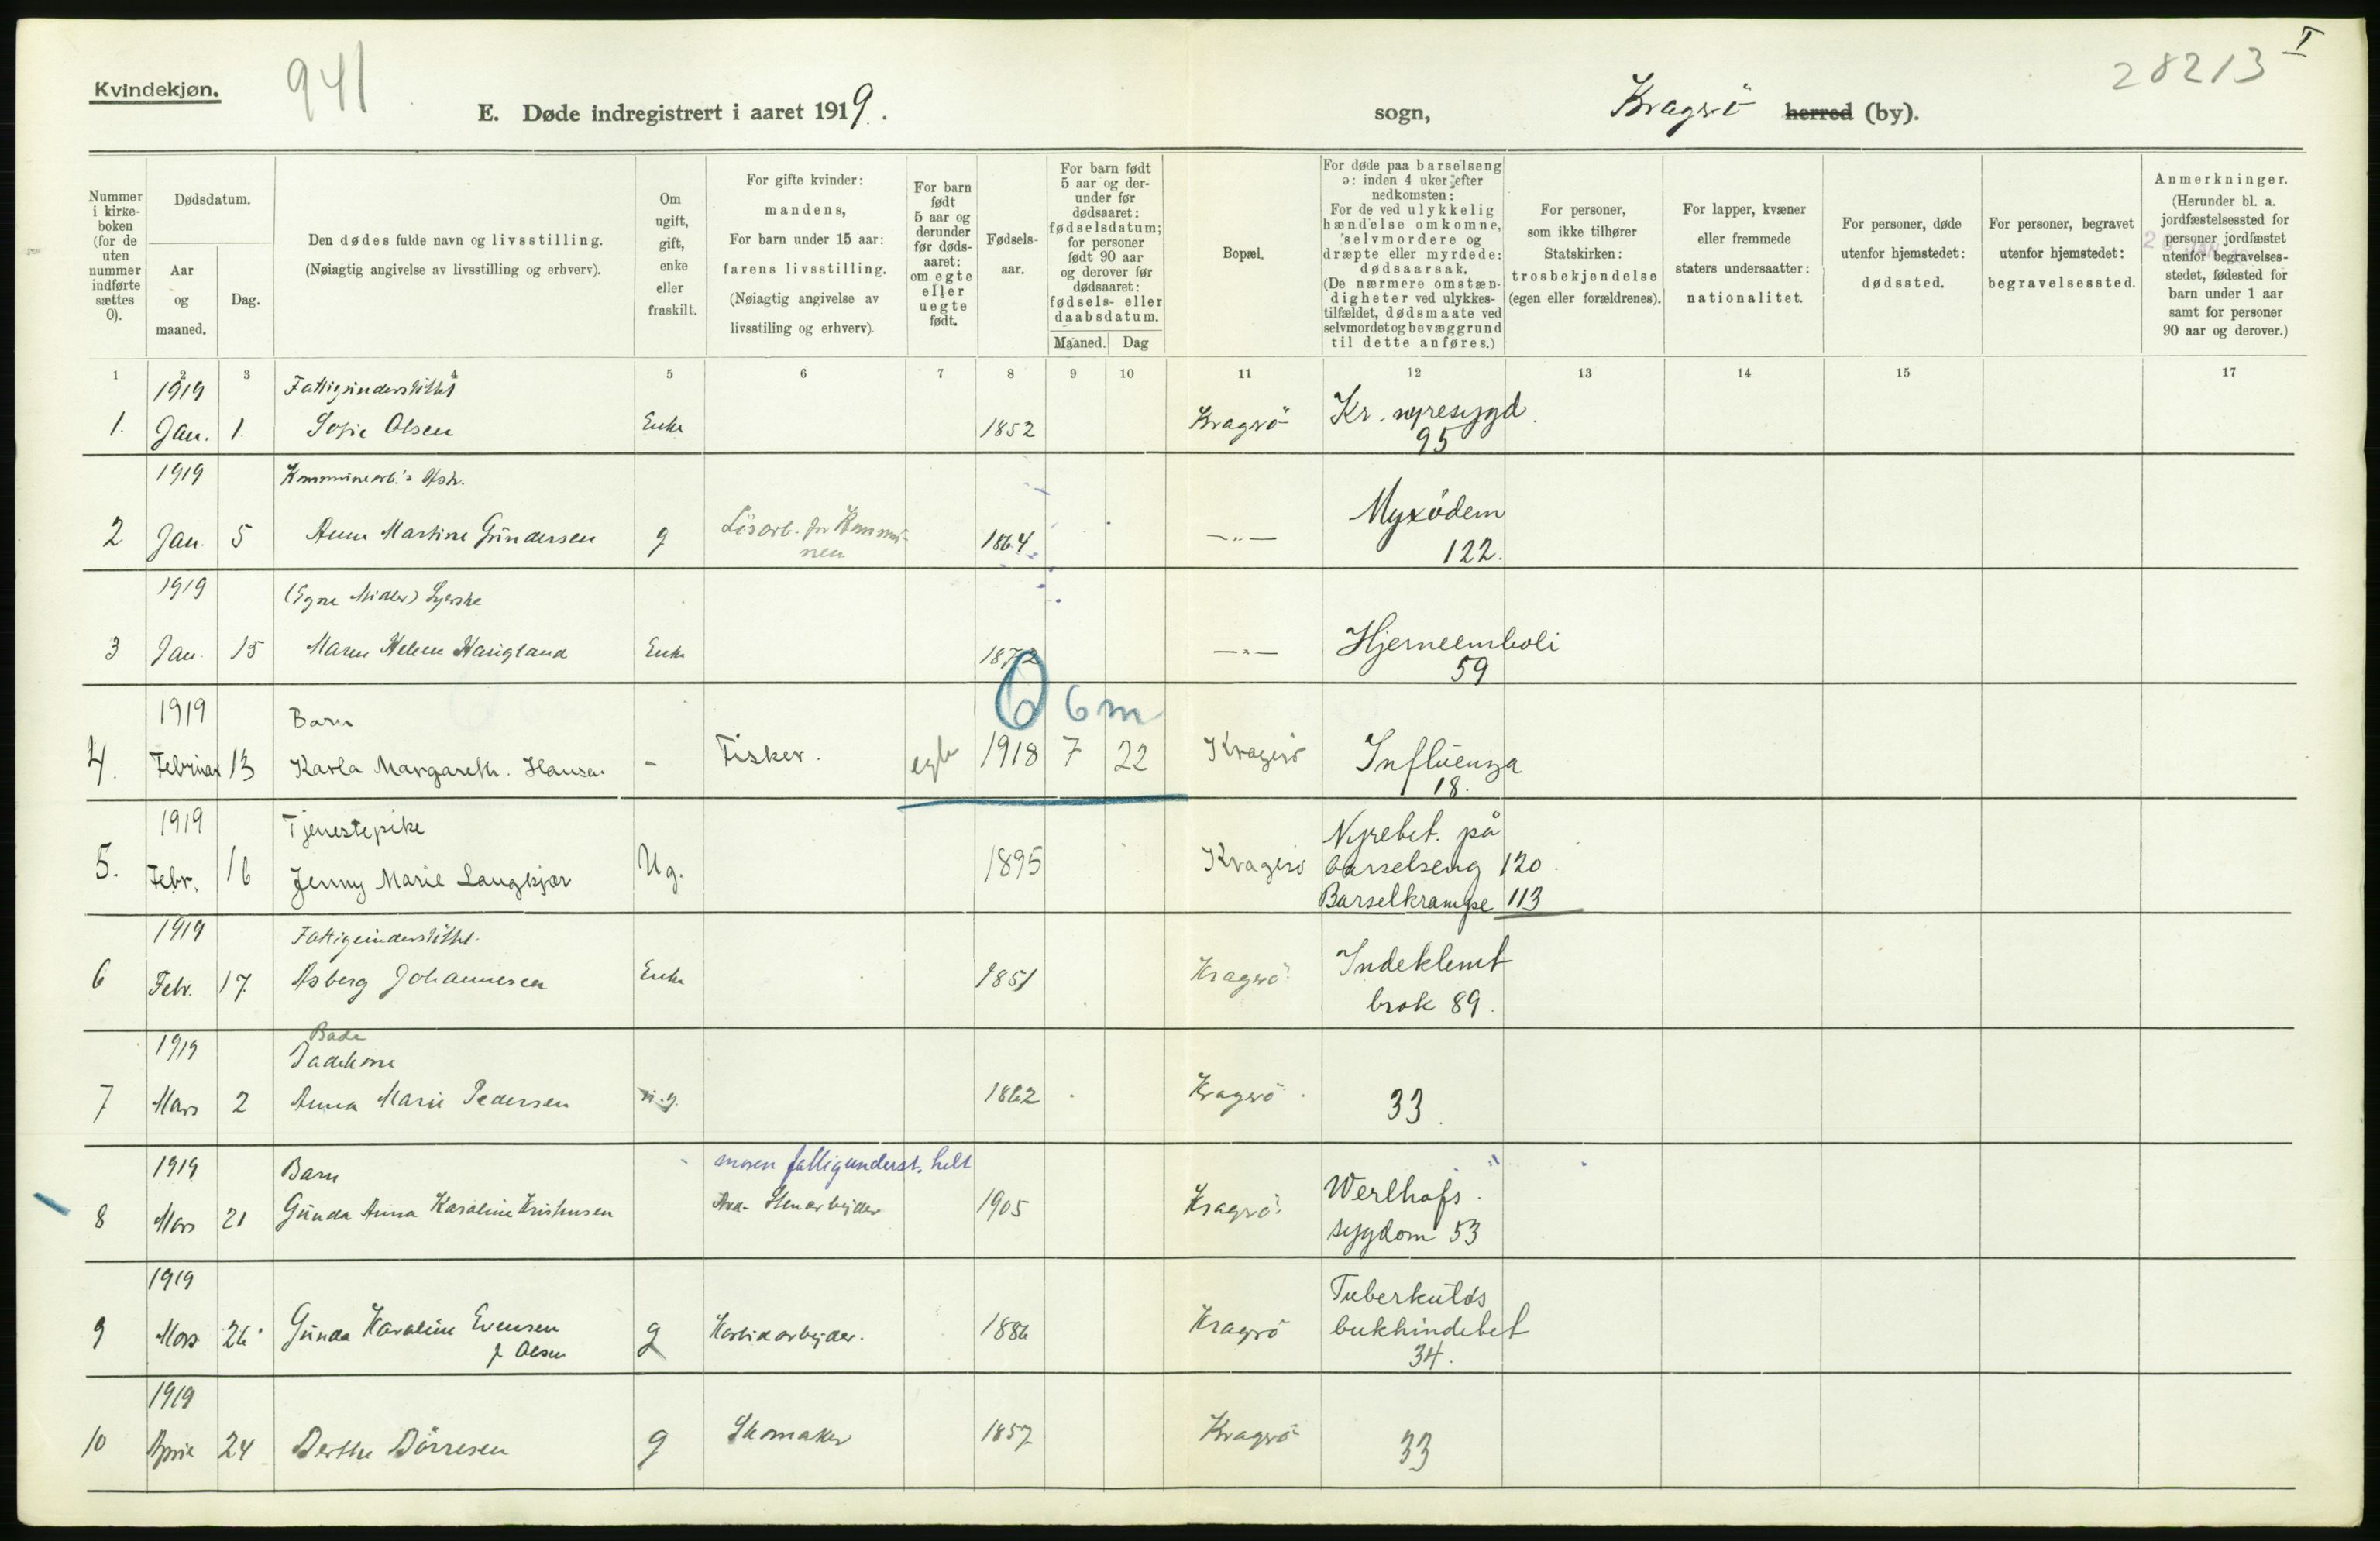 Kvindekjøn.
941
28213 I
E. Døde indregistrert i aaret 1919. sogn, Kragerö herred (by).
Nummer i kirkeboken (for de uten nummer indførte sættes 0).
Dødsdatum.
Aar og maaned.
Dag.
Den dødes fulde navn og livsstilling.
(Nøiagtig angivelse av livsstilling og erhverv).
Om ugift, gift, enke eller fraskilt.
For gifte kvinder: mandens,
For barn under 15 aar: farens livsstilling.
(Nøiagtig angivelse av livsstiling og erhverv).
For barn født 5 aar og derunder før dødsaaret: om egte eller uegte født.
Fødselsaar.
For barn født 5 aar og derunder før dødsaaret: fødselsdatum; for personer født 90 aar og derover før dødsaaret: fødsels- eller daabsdatum.
Maaned. Dag
Bopæl.
For døde paa barselseng ɔ: inden 4 uker efter nedkomsten:
For de ved ulykkelig hændelse omkomne, selvmordere og dræpte eller myrdede: dødsaarsak.
(De nærmere omstændigheter ved ulykkestilfældet, dødsmaate ved selvmordet og bevæggrund til dette anføres.)
For personer, som ikke tilhører Statskirken: trosbekjendelse (egen eller forældrenes).
For lapper, kvæner eller fremmede staters undersaatter: nationalitet.
For personer, døde utenfor hjemstedet: dødssted.
For personer, begravet utenfor hjemstedet: begravelsessted.
Anmerkninger.
(Herunder bl. a. jordfæstelsessted for personer jordfæstet utenfor begravelsesstedet, fødested for barn under 1 aar samt for personer 90 aar og derover.)
1 2 3 4 5 6 7 8 9 10 11 12 13 14 15 17
1919 Fattigunderstöttet
1. Jan. 1. Sofie Olsen Enke 1852 Kragerö Kr. nyresygd. 95
1919 Kommunearb.'s
2 Jan. 5 Anne Martine Gundersen g Lösarb. for Kommunen 1864 —„— Myxödem 122.
1919 (Egne Midler)
3 Jan. 15 Maren Helene Enke 1872 —„— Hjerneemboli 59
6 6m
1919 Barn
4. Februar 13 Karla Margareth. Hansen - Fisker. egte 1918 7 22 Kragerö Influenza 18.
1919 Tjenestepike
5. Febr. 16 Jenny Marie Langkjær Ug. 1895 Kragerö Nyrebet. på barselseng 120.
Barselkrampe 113
1919 Fattigunderstöttet.
6 Febr. 17. Asberg Johannesen Enke 1851 Kragerö Indeklemt brok 89.
Bade
1919 Badekone
7 Mars 2 Anna Marie Pedersen u.g. 1862 Kragerö 33.
1919 Barn moren fattigunderst. helt
8 Mars 21 Gunda Anna Karoline Kristensen Stenarbeider 1905 Kragerö Werlhofs sygdom 53
1919
9 Mars 26 Gunda Karoline Evensen g Karbidarbeider. 1886 Kragerö Tuberkuløs bukhindebet 34.
f. Olsen
1919
10 April 24 Berthe Dörresen g Skomaker 1857 Kragerö 33